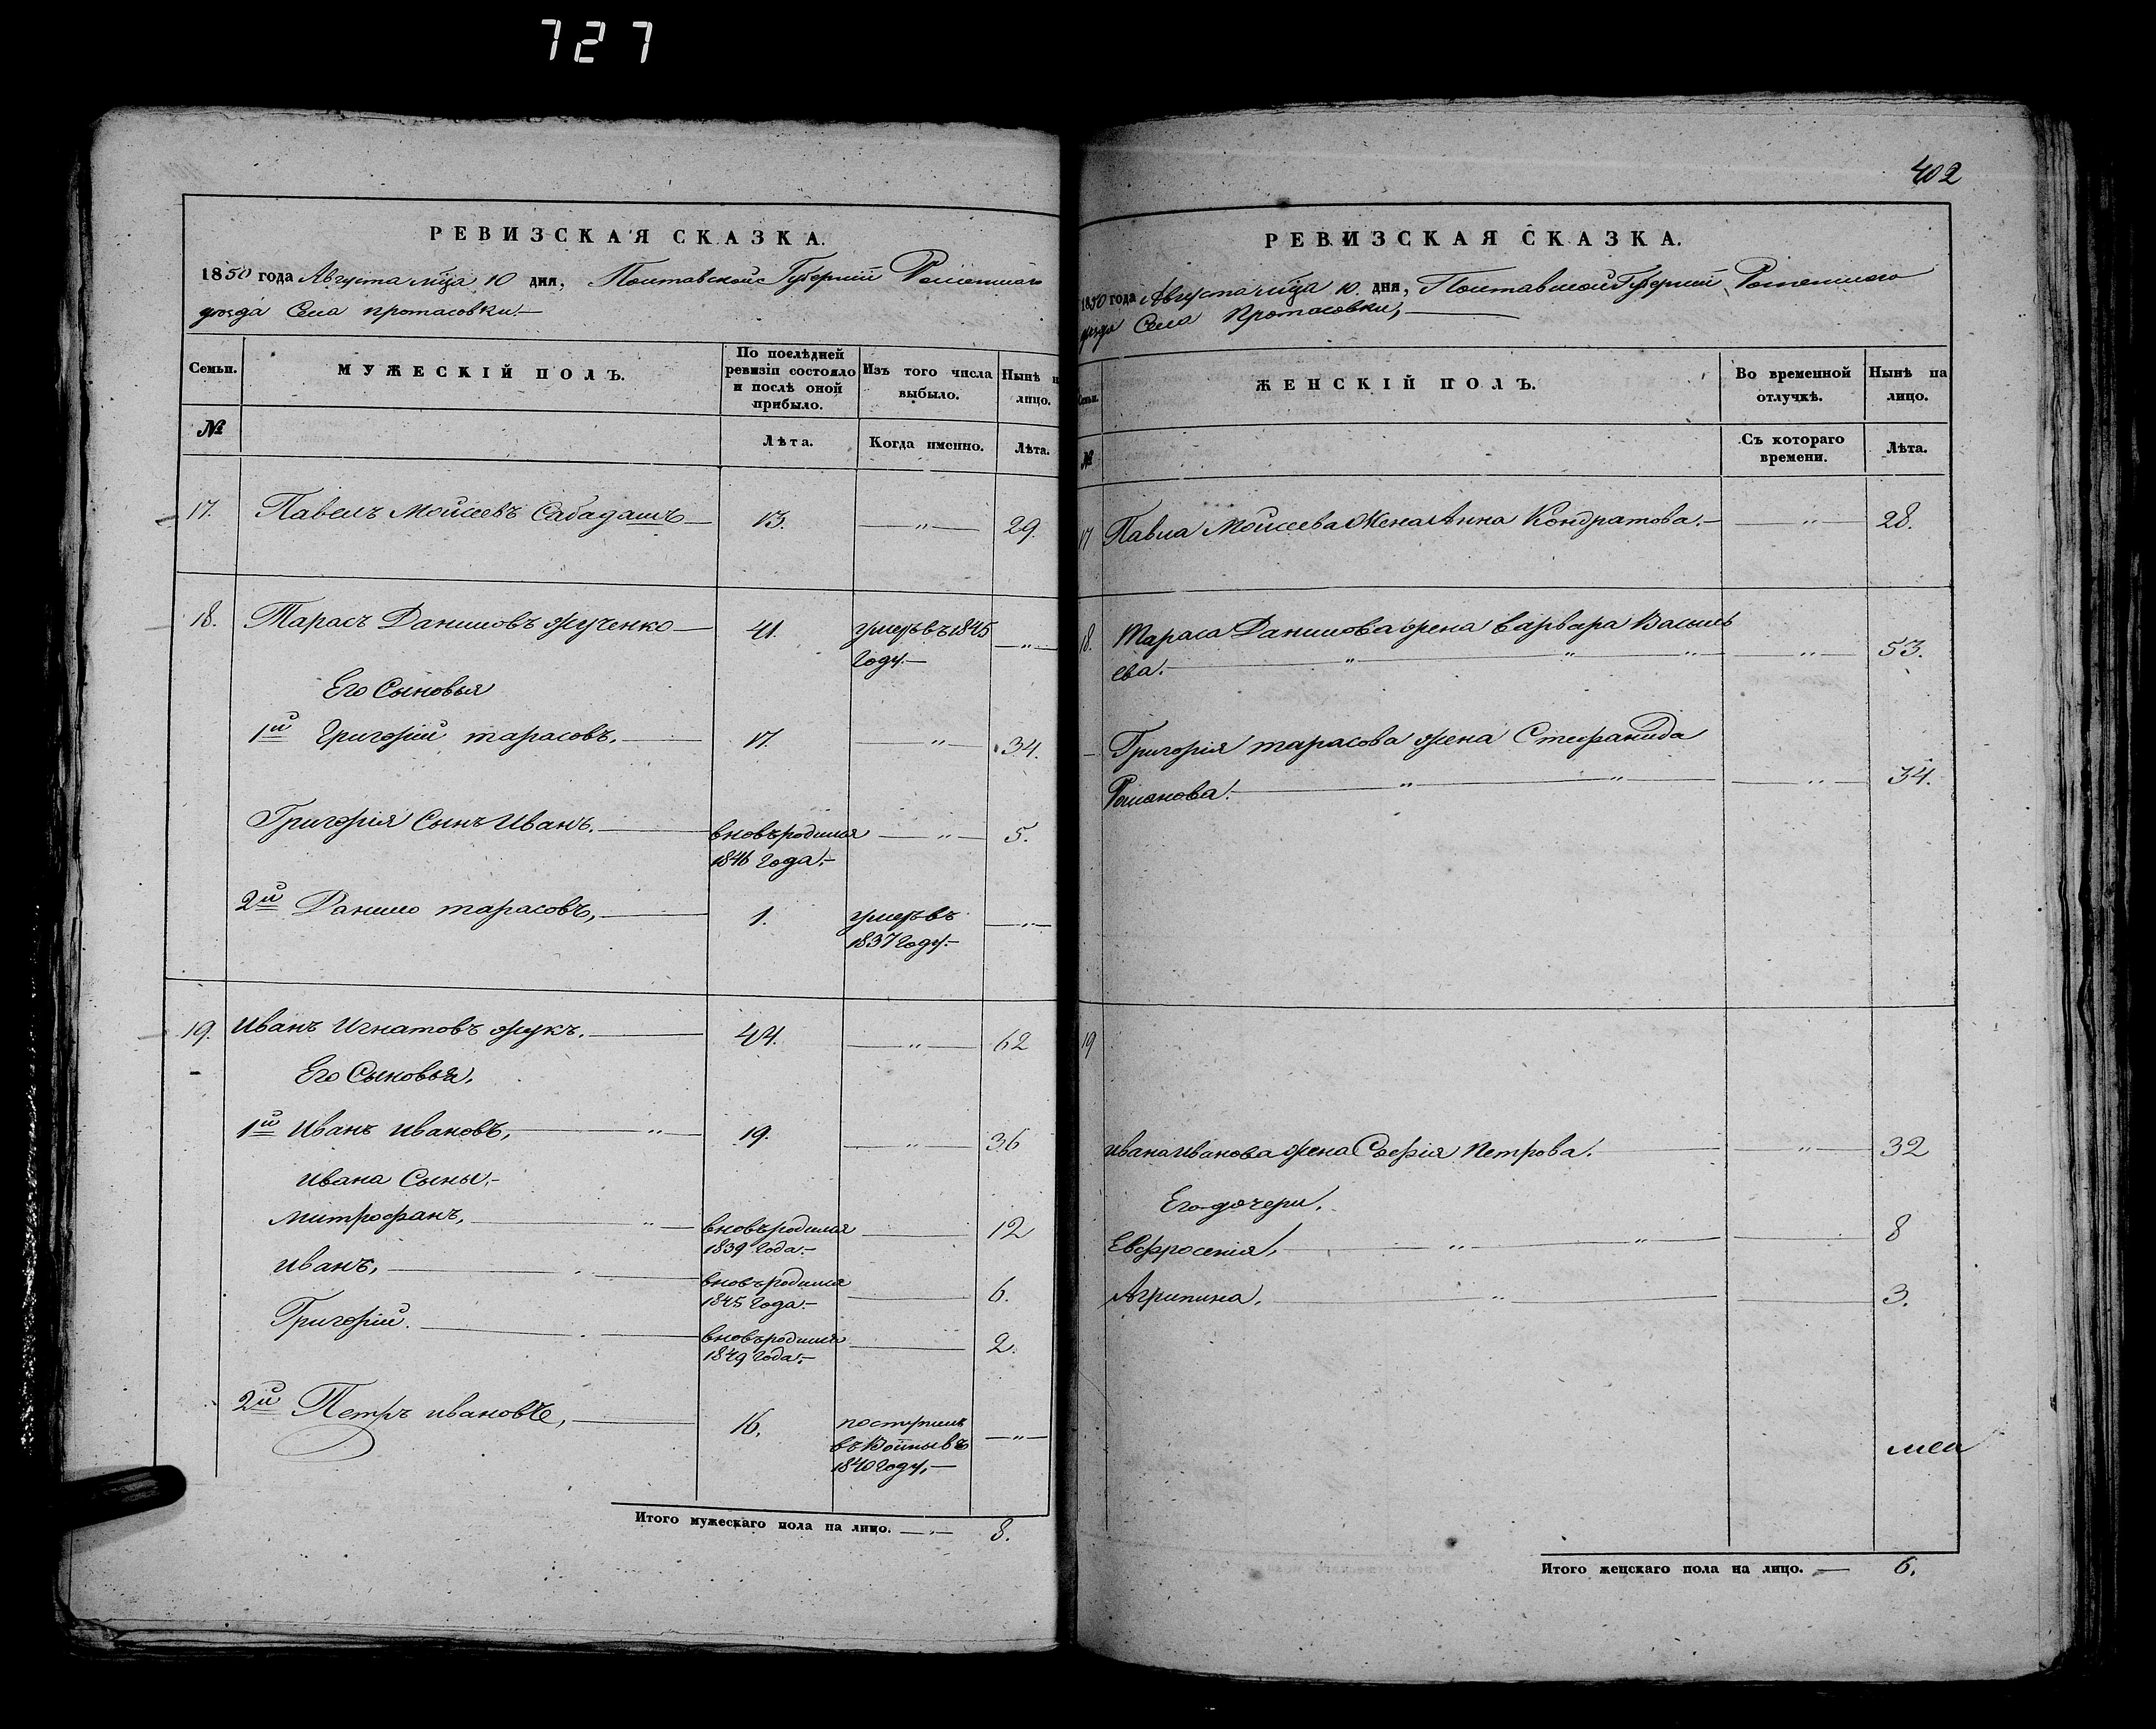 727
РЕВИЗСКАЯ СКАЗКА.
1850 года Августа мца 10 дня, Полтавской Губернiи Роменского
уезда Села протасовки.
Семьи.
МУЖЕСКIЙ ПОЛЪ.
По послѣдней ревизiи состояло и послѣ оной прибыло.
Изъ того числа выбыло.
Нынѣ н лицо.
№
Лѣта.
Когда именно.
Лѣта.
17. Павелъ Моисеевъ Сабадашъ 13. " 29.
18. Тарасъ Даниловъ жученко 41. умеръ въ 1845 "
Году.
Его Сыновья
1й Григорiй тарасовъ. 17. " 34.
Григорiя Сынъ Иванъ. вновьродился " 5.
1846 года.
2й Данило тарасовъ, 1. умеръ въ "
1837 Году.
19. Иванъ Игнатовъ жукъ. 44. " 62
Его Сыновья.
1й Иванъ ивановъ, " 19. " 36
ивана Сыны.
митрофанъ, " вновьродился 12
1839 года.
иванъ, вновьродился 6.
1845 года.
Григорiй. вновьродился 2.
1849 года.
2й Петръ ивановъ, 16. поступилъ "
въ 1840 Году.
Итого мужескаго пола на лицо. " 8.
402
РЕВИЗСКАЯ СКАЗКА.
1850 года Августа мца 10 дня, Полтавской Губернiи Роменского
уезда Села Протасовки,
Семьи.
ЖЕНСКIЙ ПОЛЪ.
Во временной отлучкѣ.
Нынѣ на лицо.
№
Съ котораго времени.
Лѣта.
17 Павла Моисеева Жена Анна Кондратова. " 28.
18. Тараса Данилова жена варвара Василь
ева. " " " " 53.
Григорiя тарасова жена Стефанида
Романова. " " " 34.
19
ивана иванова жена Софiя Петрова. " 32
Его дочери.
Евфросенiя, " " 8
Агрипина. " 3.
Итого женскаго пола на лицо. 6.